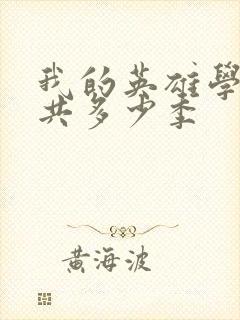 我的英雄學
共多少季
黃海波